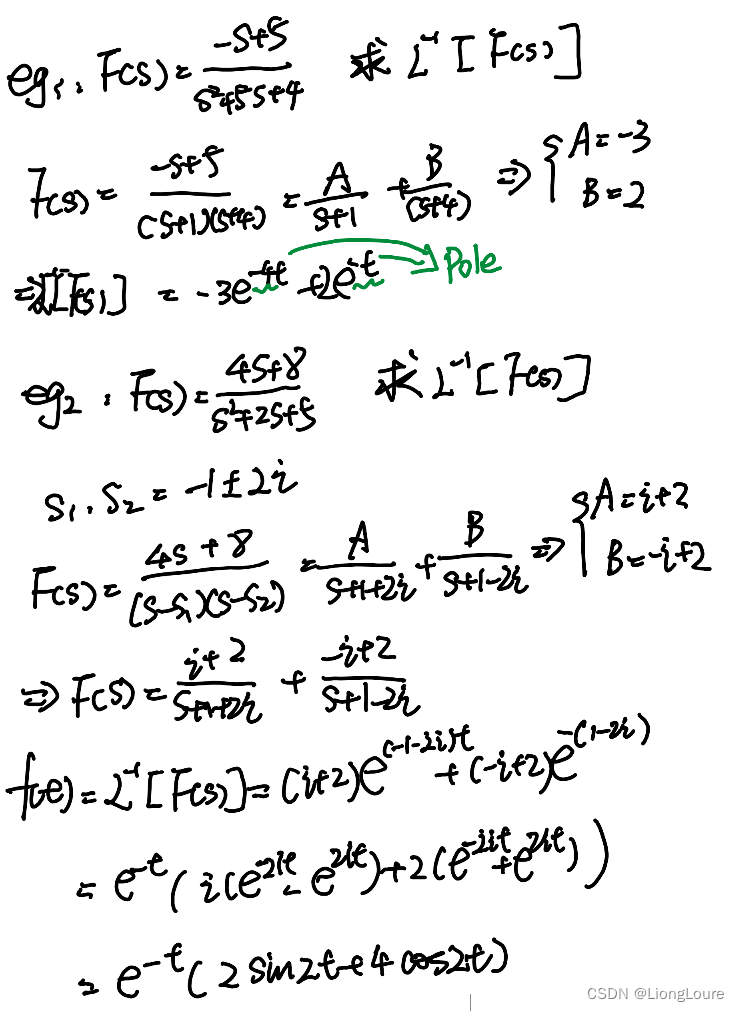 eg1: F(s) = (-s+5)/(s²+5s+4) 求 L⁻¹[F(s)]
F(s) = (-s+5)/((s+1)(s+4)) = A/(s+1) + B/(s+4) ⇒ { A=-3
B=2
⇒ L⁻¹[F(s)] = -3e^(-4t) + 2e^(-t) Pole
eg2: F(s) = (4s+8)/(s²+2s+5) 求 L⁻¹[F(s)]
s₁, s₂ = -1±2i
F(s) = (4s+8)/((s-s₁)(s-s₂)) = A/(s+1+2i) + B/(s+1-2i) ⇒ { A=i+2
B=-i+2
⇒ F(s) = (i+2)/(s+1+2i) + (-i+2)/(s+1-2i)
f(t) = L⁻¹[F(s)] = (i+2)e^((-1-2i)t) + (-i+2)e^(-(1-2i))
= e^(-t)(i(e^(-2it) - e^(2it)) + 2(e^(-2it) + e^(2it)))
= e^(-t)(2 sin2t + 4 cos2t)
CSDN @LiongLoure